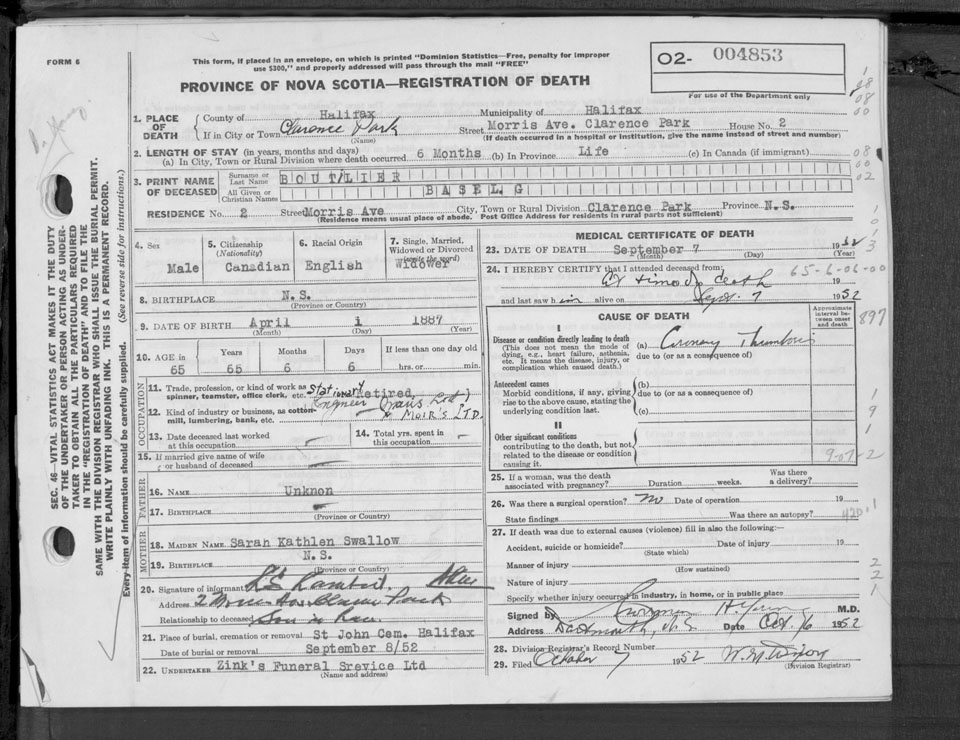 FORM 6
This form, if placed in an envelope, on which is printed "Dominion Statistics—Free, penalty for improper
use $300," and properly addressed will pass through the mail "FREE"
PROVINCE OF NOVA SCOTIA—REGISTRATION OF DEATH
O2- 004853
For use of the Department only
1. PLACE OF DEATH County of Halifax Municipality of Halifax
If in City or Town Clarence Park (Name) Street Morris Ave. Clarence Park House No. 2
(If death occurred in a hospital or institution, give the name instead of street and number)
2. LENGTH OF STAY (in years, months and days)
(a) In City, Town or Rural Division where death occurred 6 Months (b) In Province Life (c) In Canada (if immigrant)
3. PRINT NAME OF DECEASED Surname or Last Name BOUTLIER
All Given or Christian Names BASEL G
RESIDENCE No. 2 Street Morris Ave City, Town or Rural Division Clarence Park Province N.S.
(Residence means usual place of abode. Post Office Address for residents in rural parts not sufficient)
4. Sex Male
5. Citizenship (Nationality) Canadian
6. Racial Origin English
7. Single, Married, Widowed or Divorced (write the word) Widower
8. BIRTHPLACE N.S.
(Province or Country)
9. DATE OF BIRTH April 1 1887
(Month) (Day) (Year)
10. AGE in Years Months Days If less than one day old
65 65 6 6 hrs. or min.
OCCUPATION
11. Trade, profession or kind of work as spinner, teamster, office clerk, etc. Stationary Engineer Retired
12. Kind of industry or business, as cotton-mill, lumbering, bank, etc. Moir's LTD.
13. Date deceased last worked at this occupation
14. Total yrs. spent in this occupation
15. If married give name of wife or husband of deceased
FATHER
16. NAME Unknon
17. BIRTHPLACE
(Province or Country)
MOTHER
18. MAIDEN NAME Sarah Kathlen Swallow
19. BIRTHPLACE N.S.
(Province or Country)
20. Signature of informant
Address 2 Morris Ave Clarence Park
Relationship to deceased Son in Law
21. Place of burial, cremation or removal St John Cem. Halifax
Date of burial or removal September 8/52
22. UNDERTAKER Zink's Funeral Srevice Ltd
(Name and address)
MEDICAL CERTIFICATE OF DEATH
23. DATE OF DEATH September 7 19
(Month) (Day) (Year)
24. I HEREBY CERTIFY that I attended deceased from
At time of death 19
and last saw him alive on Sept. 7 1952
65-6-06-00
CAUSE OF DEATH
Approximate interval between onset and death
I
Disease or condition directly leading to death
(This does not mean the mode of dying, e.g., heart failure, asthenia, etc. It means the disease, injury, or complication which caused death.)
(a) Coronary Thrombosis
due to (or as a consequence of)
897
Antecedent causes
Morbid conditions, if any, giving rise to the above cause, stating the underlying condition last.
(b)
due to (or as a consequence of)
(c)
II
Other significant conditions
contributing to the death, but not related to the disease or condition causing it.
9-07-2
25. If a woman, was the death associated with pregnancy? Duration weeks. Was there a delivery?
26. Was there a surgical operation? no Date of operation 19
State findings Was there an autopsy?
27. If death was due to external causes (violence) fill in also the following:—
Accident, suicide or homicide? Date of injury 19
(State which)
Manner of injury
(How sustained)
Nature of injury
Specify whether injury occurred in industry, in home, or in public place
Signed by M.D.
Address Dartmouth, N.S. Date Oct. 6 1952
28. Division Registrar's Record Number
29. Filed October 7 1952
(Division Registrar)
SEC. 46—VITAL STATISTICS ACT MAKES IT THE DUTY
OF THE UNDERTAKER OR PERSON ACTING AS UNDER-
TAKER TO OBTAIN ALL THE PARTICULARS REQUIRED
IN THE "REGISTRATION OF DEATH" AND TO FILE THE
SAME WITH THE DIVISION REGISTRAR WHO SHALL ISSUE THE BURIAL PERMIT.
WRITE PLAINLY WITH UNFADING INK. THIS IS A PERMANENT RECORD.
Every item of information should be carefully supplied. (See reverse side for instructions.)